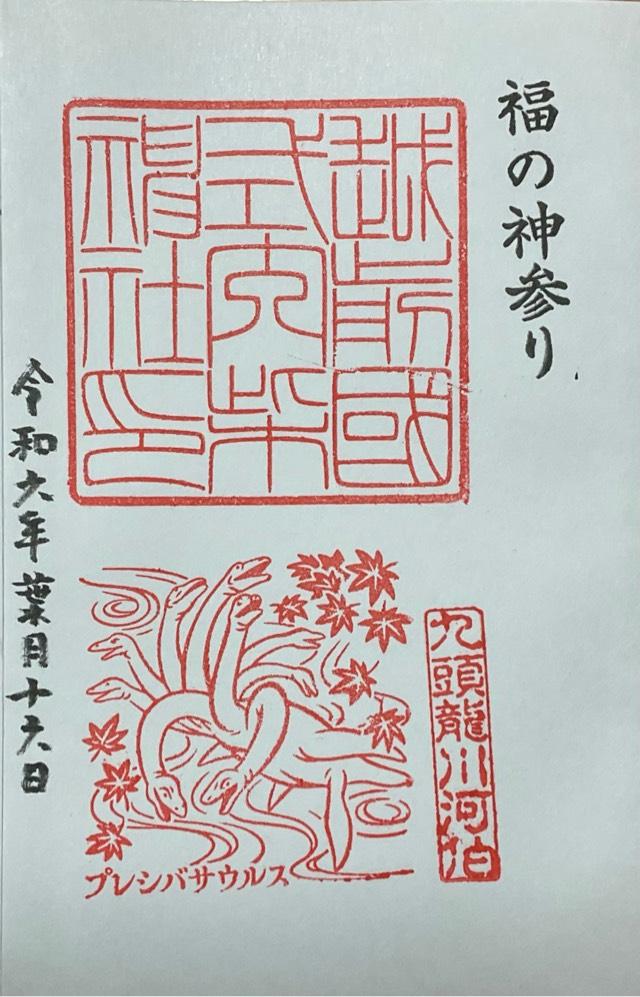 福の神参り
越前國
式内柴
神社印
令和六年葉月十六日
九頭龍川河伯
プレシバサウルス